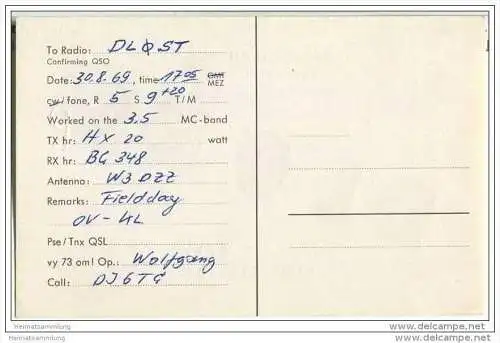 To Radio: DLØST
Confirming QSO
Date: 30.8.69, time 17 05 GMT
MEZ
cw/fone, R 5 S 9 +20 T/M
Worked on the 3,5 MC-band
TX hr: HX 20 watt
RX hr: BG 348
Antenna: W3DZZ
Remarks: Fieldday
OV-HL
Pse/Tnx QSL
vy 73 om! Op.: Wolfgang
Call: DJ6TG
Heimatsammlung
www.delcampe.net